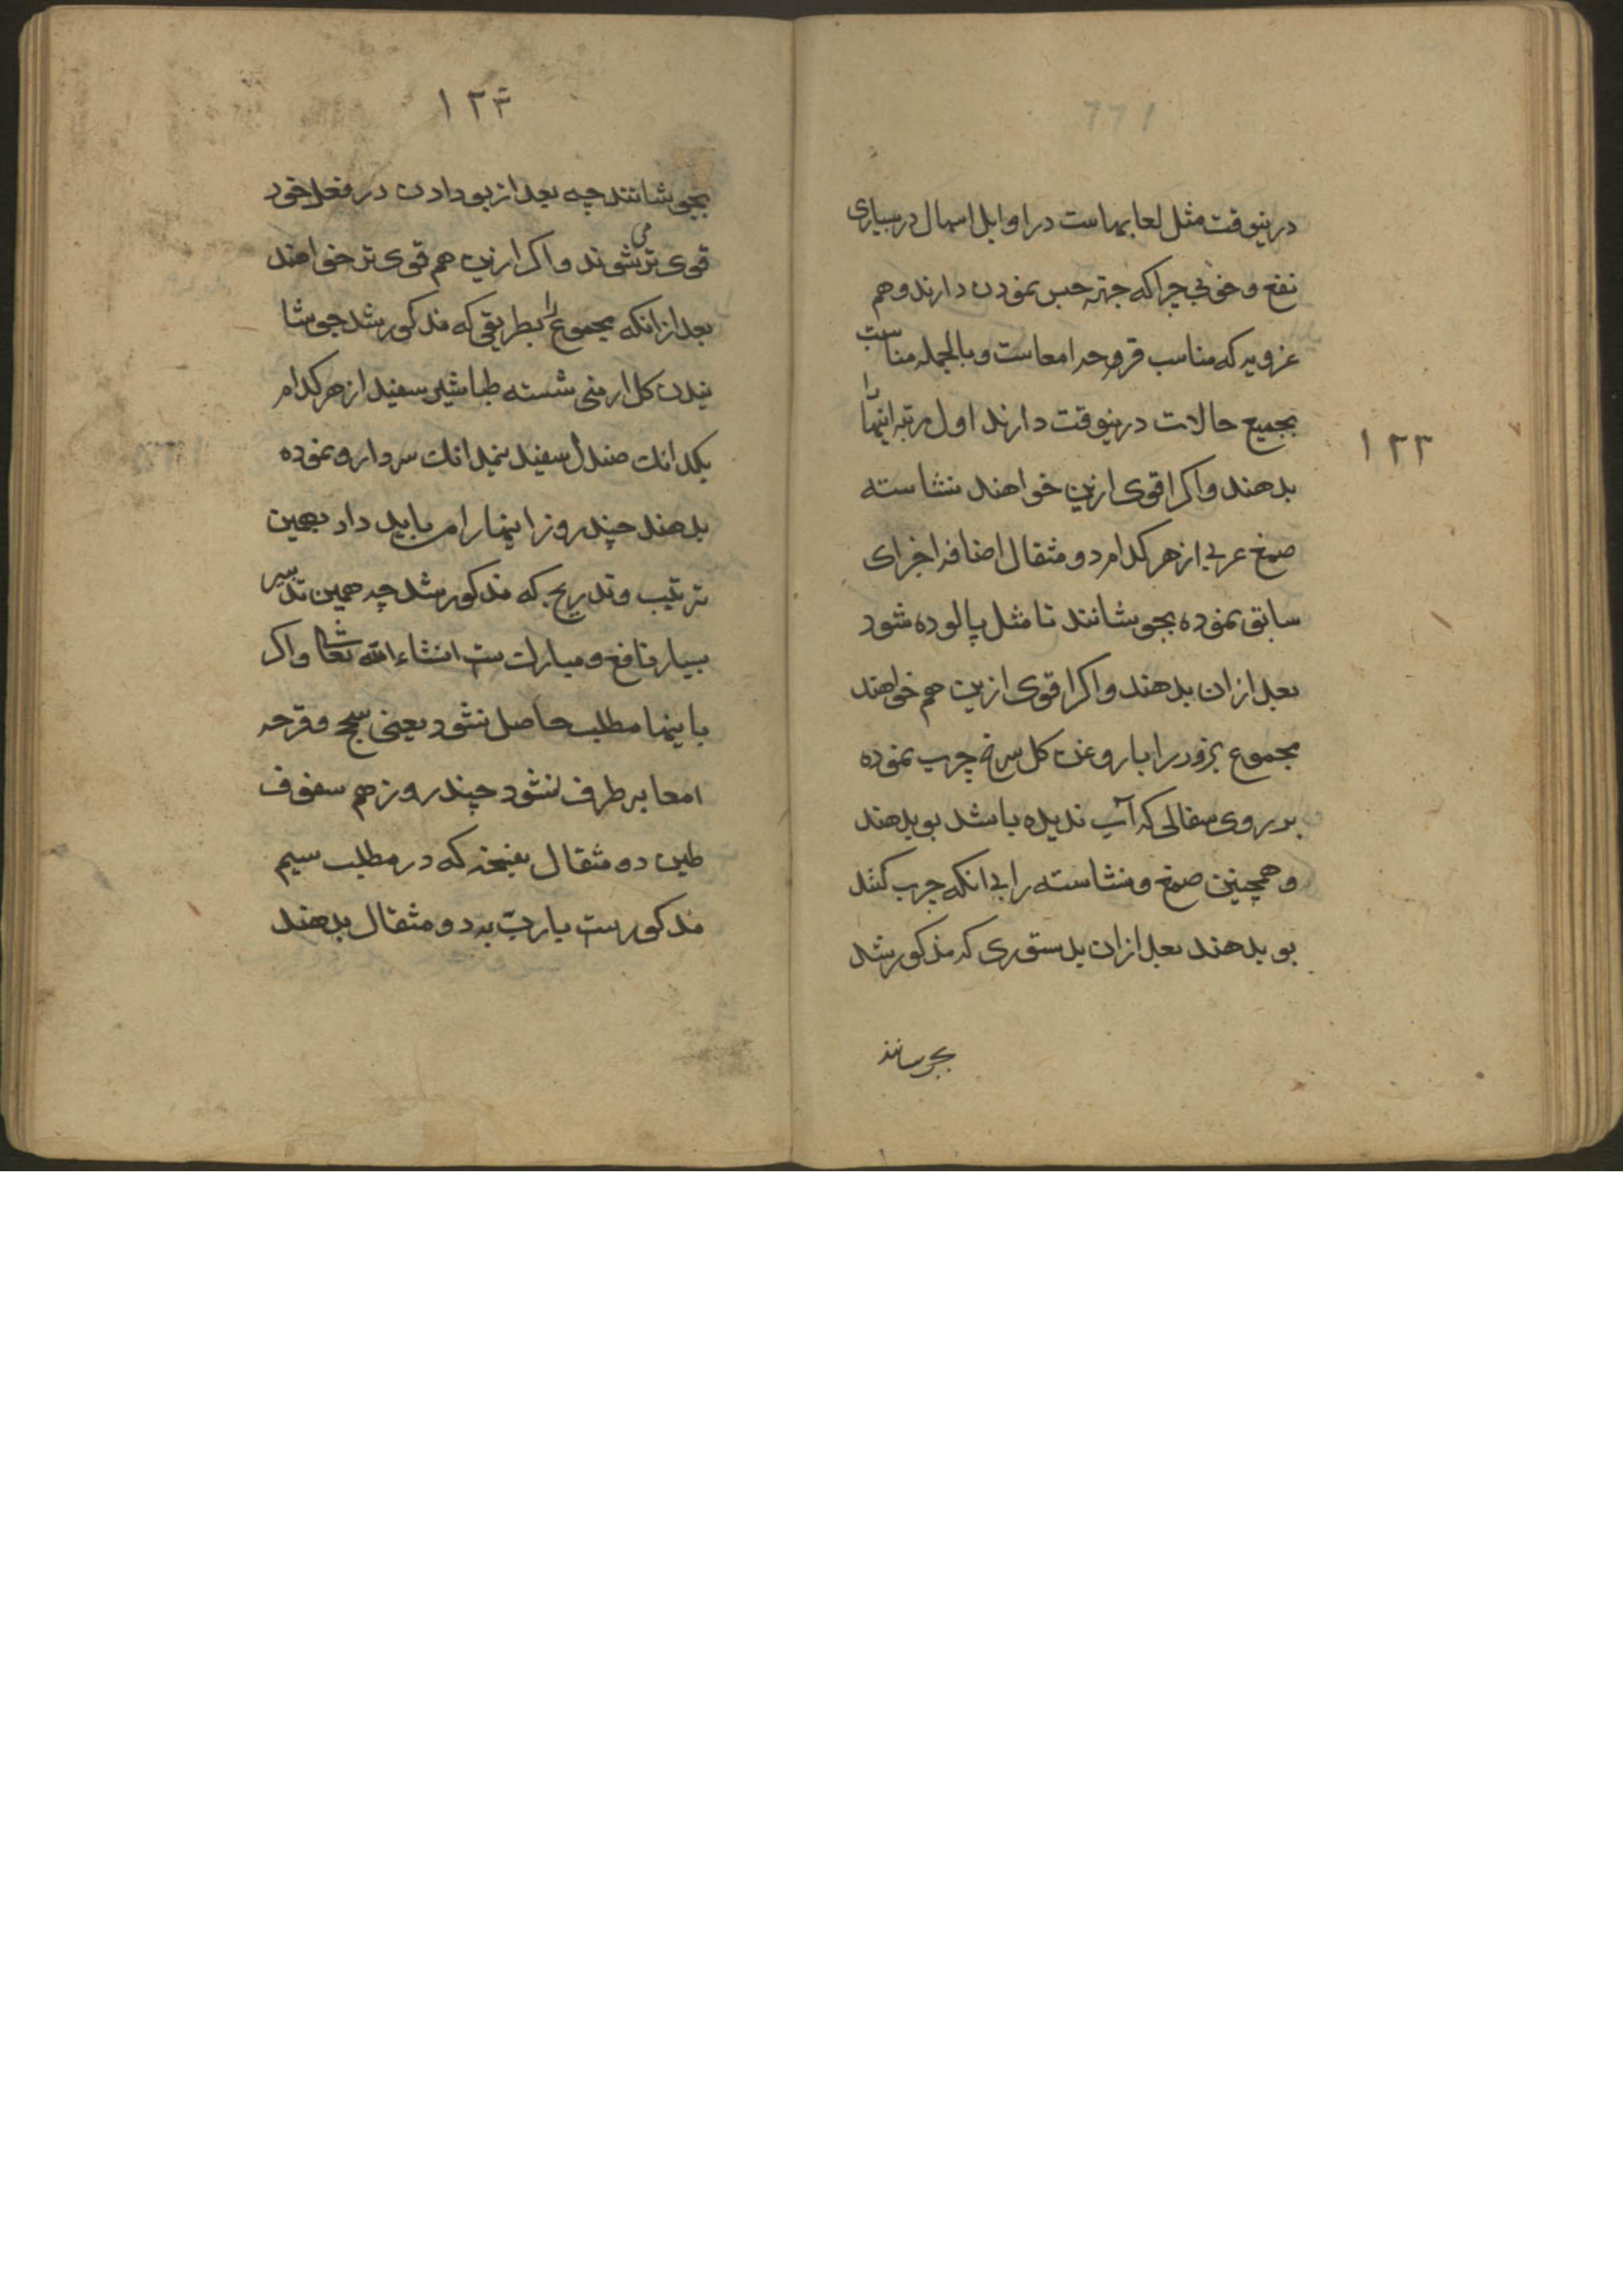 ۱۲۳
درینوقت مثل لعابهاست در اوایل اسهال در بسیاری
نفع و خوبی چراکه جهة حبس نمودن دارند و هم
غرویه که مناسب قروحه امعاست و بالجمله مناسبت
بجمیع حالات درینوقت دارند اول مرتبه اینها را
بدهند و اکر اقوی ازین خواهند نشاسته
صمغ عربی از هر کدام دو مثقال اضافه اجزای
سابق نموده بجوشانند تا مثل پالوده شود
بعد ازان بدهند و اکر اقوی ازین هم خواهند
مجموع بزور را با روغن کل سرخ چرب نموده
بر روی سفالی که آب ندیده باشد بو بدهند
و همچنین صمغ و نشاسته را بی انکه چرب کنند
بو بدهند بعد ازان بدستوری که مذکور شد
بجوشانند
۱۲۴
بجوشانند چه بعد از بو دادن در فعل خود
قوی تر می شوند و اکر ازین هم قوی تر خواهند
بعد ازانکه مجموع را بطریقی که مذکور شد جوشا
نیدن کل ارمنی شسته طباشیر سفید از هر کدام
یکدانک صندل سفید نیمدانک سردارو نموده
بدهند چند روز اینها را می باید داد بهمین
ترتیب و تدریج که مذکور شد چه همین تدبیر
بسیار نافع و مبارک ست انشاء الله تعالی و اکر
باینها مطلب حاصل نشود یعنی سحج و قرحه
امعا بر طرف نشود چند روز هم سفوف
طین دو مثقال بنسخه که در مطلب سیم
مذکورست با رب به دو مثقال بدهند